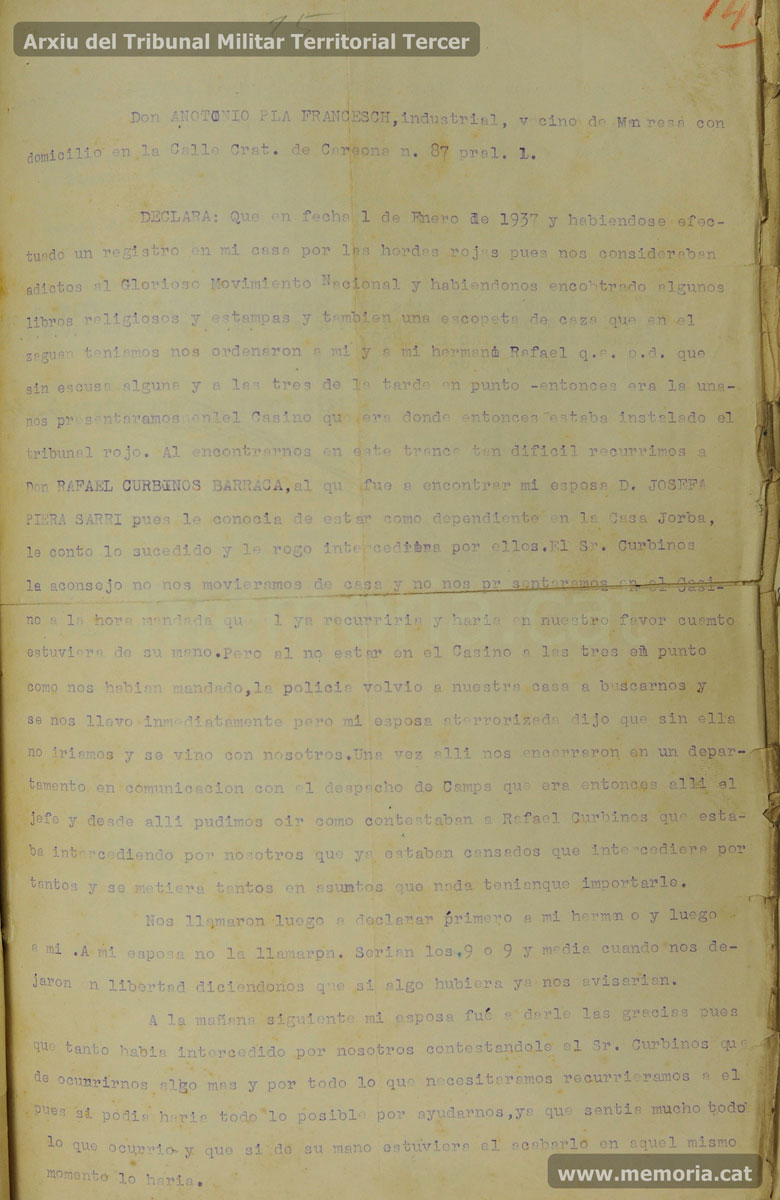 15
14
Arxiu del Tribunal Militar Territorial Tercer
Don ANOTONIO PLA FRANCESCH, industrial, vecino de Manresa con
domicilio en la Calle Crat. de Cardona n. 87 pral. 1.
DECLARA: Que en fecha 1 de Enero de 1937 y habiendose efec-
tuado un registro en mi casa por las hordas rojas pues nos consideraban
adictos al Glorioso Movimiento Nacional y habiendonos encobtrado algunos
libros religiosos y estampas y tambien una escopeta de caza que en el
zaguan teniamos nos ordenaron a mi y a mi hermano Rafael q.e. p.d. que
sin escusa alguna y a las tres de la tarde en punto -entonces era la una-
nos presentaramos enlel Casino que era donde entonces estaba instalado el
tribunal rojo. Al encontrarnos en este trance tan dificil recurrimos a
Don RAFAEL CURBINOS BARRACA, al que fue a encontrar mi esposa D. JOSEFA
PIERA SARRI pues le conocia de estar como dependiente en la Casa Jorba,
le conto lo sucedido y le rogo intercediera por ellos. El Sr. Curbinos
la aconsejo no nos movieramos de casa y no nos presentaramos en el Casi-
no a la hora mandada que el ya recurriria y haria en nuestro favor cuamto
estuviera de su mano. Pero al no estar en el Casino a las tres en punto
como nos habian mandado, la policia volvio a nuestra casa a buscarnos y
se nos llevo inmediatamente pero mi esposa aterrorizada dijo que sin ella
no iriamos y se vino con nosotros. Una vez alli nos encerraron en un depar-
tamento en comunicacion con el despacho de Camps que era entonces alli el
jefe y desde alli pudimos oir como contestaban a Rafael Curbinos que esta-
ba intercediendo por nosotros que ya estaban cansados que intercediera por
tantos y se metiera tantos en asuntos que nada tenianque importarle.
Nos llamaron luego a declarar primero a mi hermano y luego
a mi .A mi esposa no la llamaron. Serian los.9 o 9 y media cuando nos de-
jaron en libertad diciendonos que si algo hubiera ya nos avisarian.
A la mañana siguiente mi esposa fué a darle las gracias pues
que tanto habia intercedido por nosotros contestandole el Sr. Curbinos que
de ocurrirnos algo mas y por todo lo que necesitaramos recurrieramos a el
pues si podia haria todo lo posible por ayudarnos, ya que sentia mucho todo
lo que ocurrio y que si de su mano estuviera el acabarlo en aquel mismo
momento lo haria.
www.memoria.cat